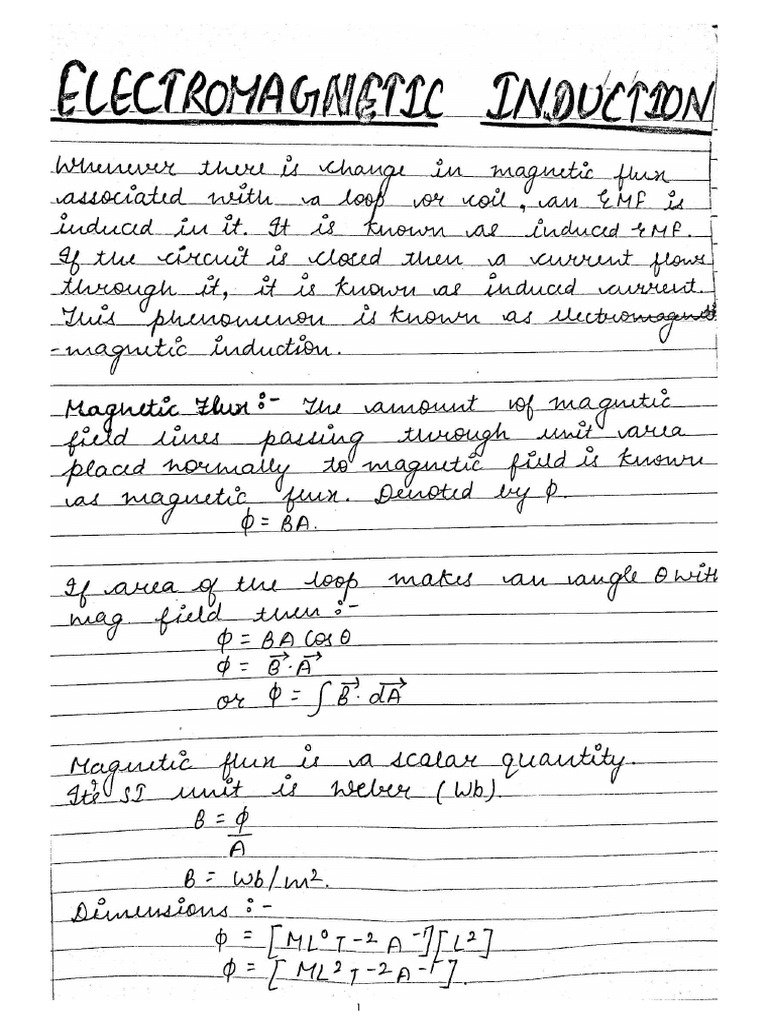 ELECTROMAGNETIC INDUCTION
Whenever there is change in magnetic flux
associated with a loop or coil, an EMF is
induced in it. It is known as induced EMF.
If the circuit is closed then a current flows
through it, it is known as induced current.
This phenomenon is known as electromagnet
-magnetic induction.
Magnetic Flux :- The amount of magnetic
field lines passing through unit area
placed normally to magnetic field is known
as magnetic flux. Denoted by ϕ.
ϕ = BA.
If area of the loop makes an angle θ with
mag. field then :-
ϕ = BA Cos θ
ϕ = B⃗ · A⃗
or ϕ = ∫ B⃗ · dA⃗
Magnetic flux is a scalar quantity.
It's SI unit is Weber (Wb).
B = ϕ
A
B = Wb/m².
Dimensions :-
ϕ = [ML⁰T⁻²A⁻¹][L²]
ϕ = [ML²T⁻²A⁻¹].
1